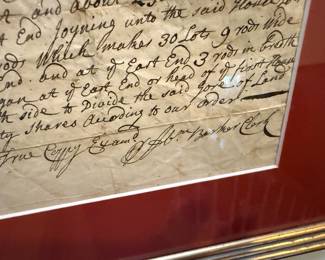 and about 25
t End Joyning unto the said House
rods Which makes 30 Lots 9 rods Wide
End. and at ye East End 3 rods in breadth
gan at ye East End or head of ye first
th side to Divide the said Gore of Land
ty shares According to our order
True Coppy Examd pr Barker Clerk